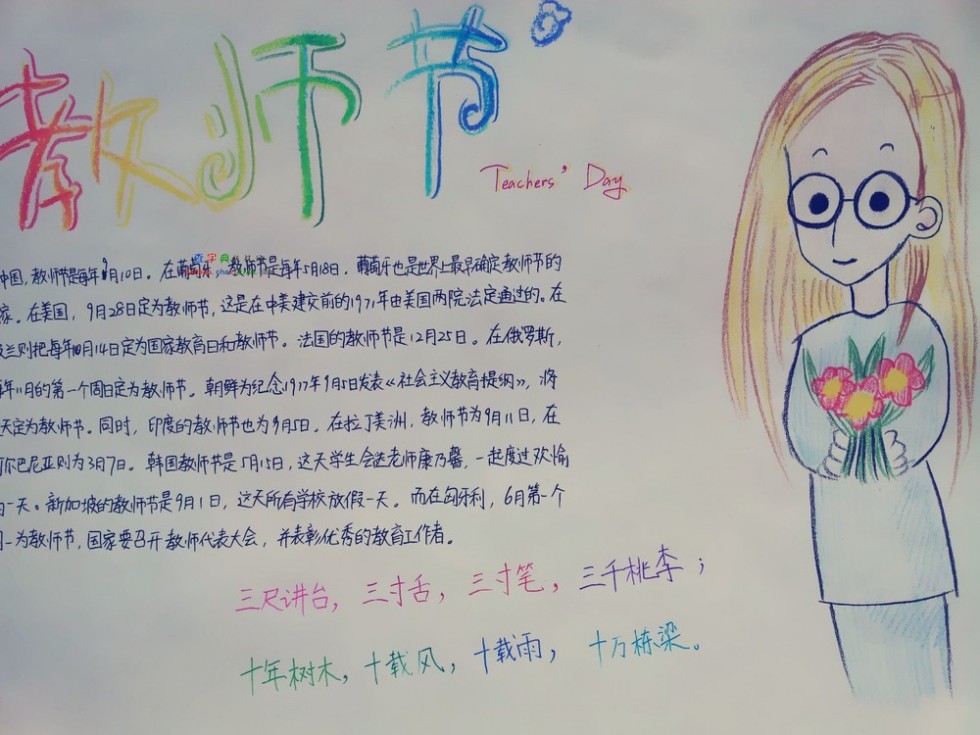 教师节
Teachers' Day
中国,教师节是每年9月10日。在葡萄牙,教师节是每年5月18日,葡萄牙也是世界上最早确定教师节的
家。在美国,9月28日定为教师节,这是在中美建交前的1971年由美国两院法定通过的。在
兰则把每年10月14日定为国家教育日和教师节。法国的教师节是12月25日。在俄罗斯,
年11月的第一个周日定为教师节。朝鲜为纪念1977年9月5日发表《社会主义教育提纲》,将
天定为教师节。同时,印度的教师节也为9月5日。在拉丁美洲,教师节为9月11日,在
尔巴尼亚则为3月7日。韩国教师节是5月15日,这天学生会送老师康乃馨,一起度过欢愉
一天。新加坡的教师节是9月1日,这天所有学校放假一天。而在匈牙利,6月第一个
一为教师节,国家要召开教师代表大会,并表彰优秀的教育工作者。
三尺讲台,三寸舌,三寸笔,三千桃李;
十年树木,十载风,十载雨,十万栋梁。